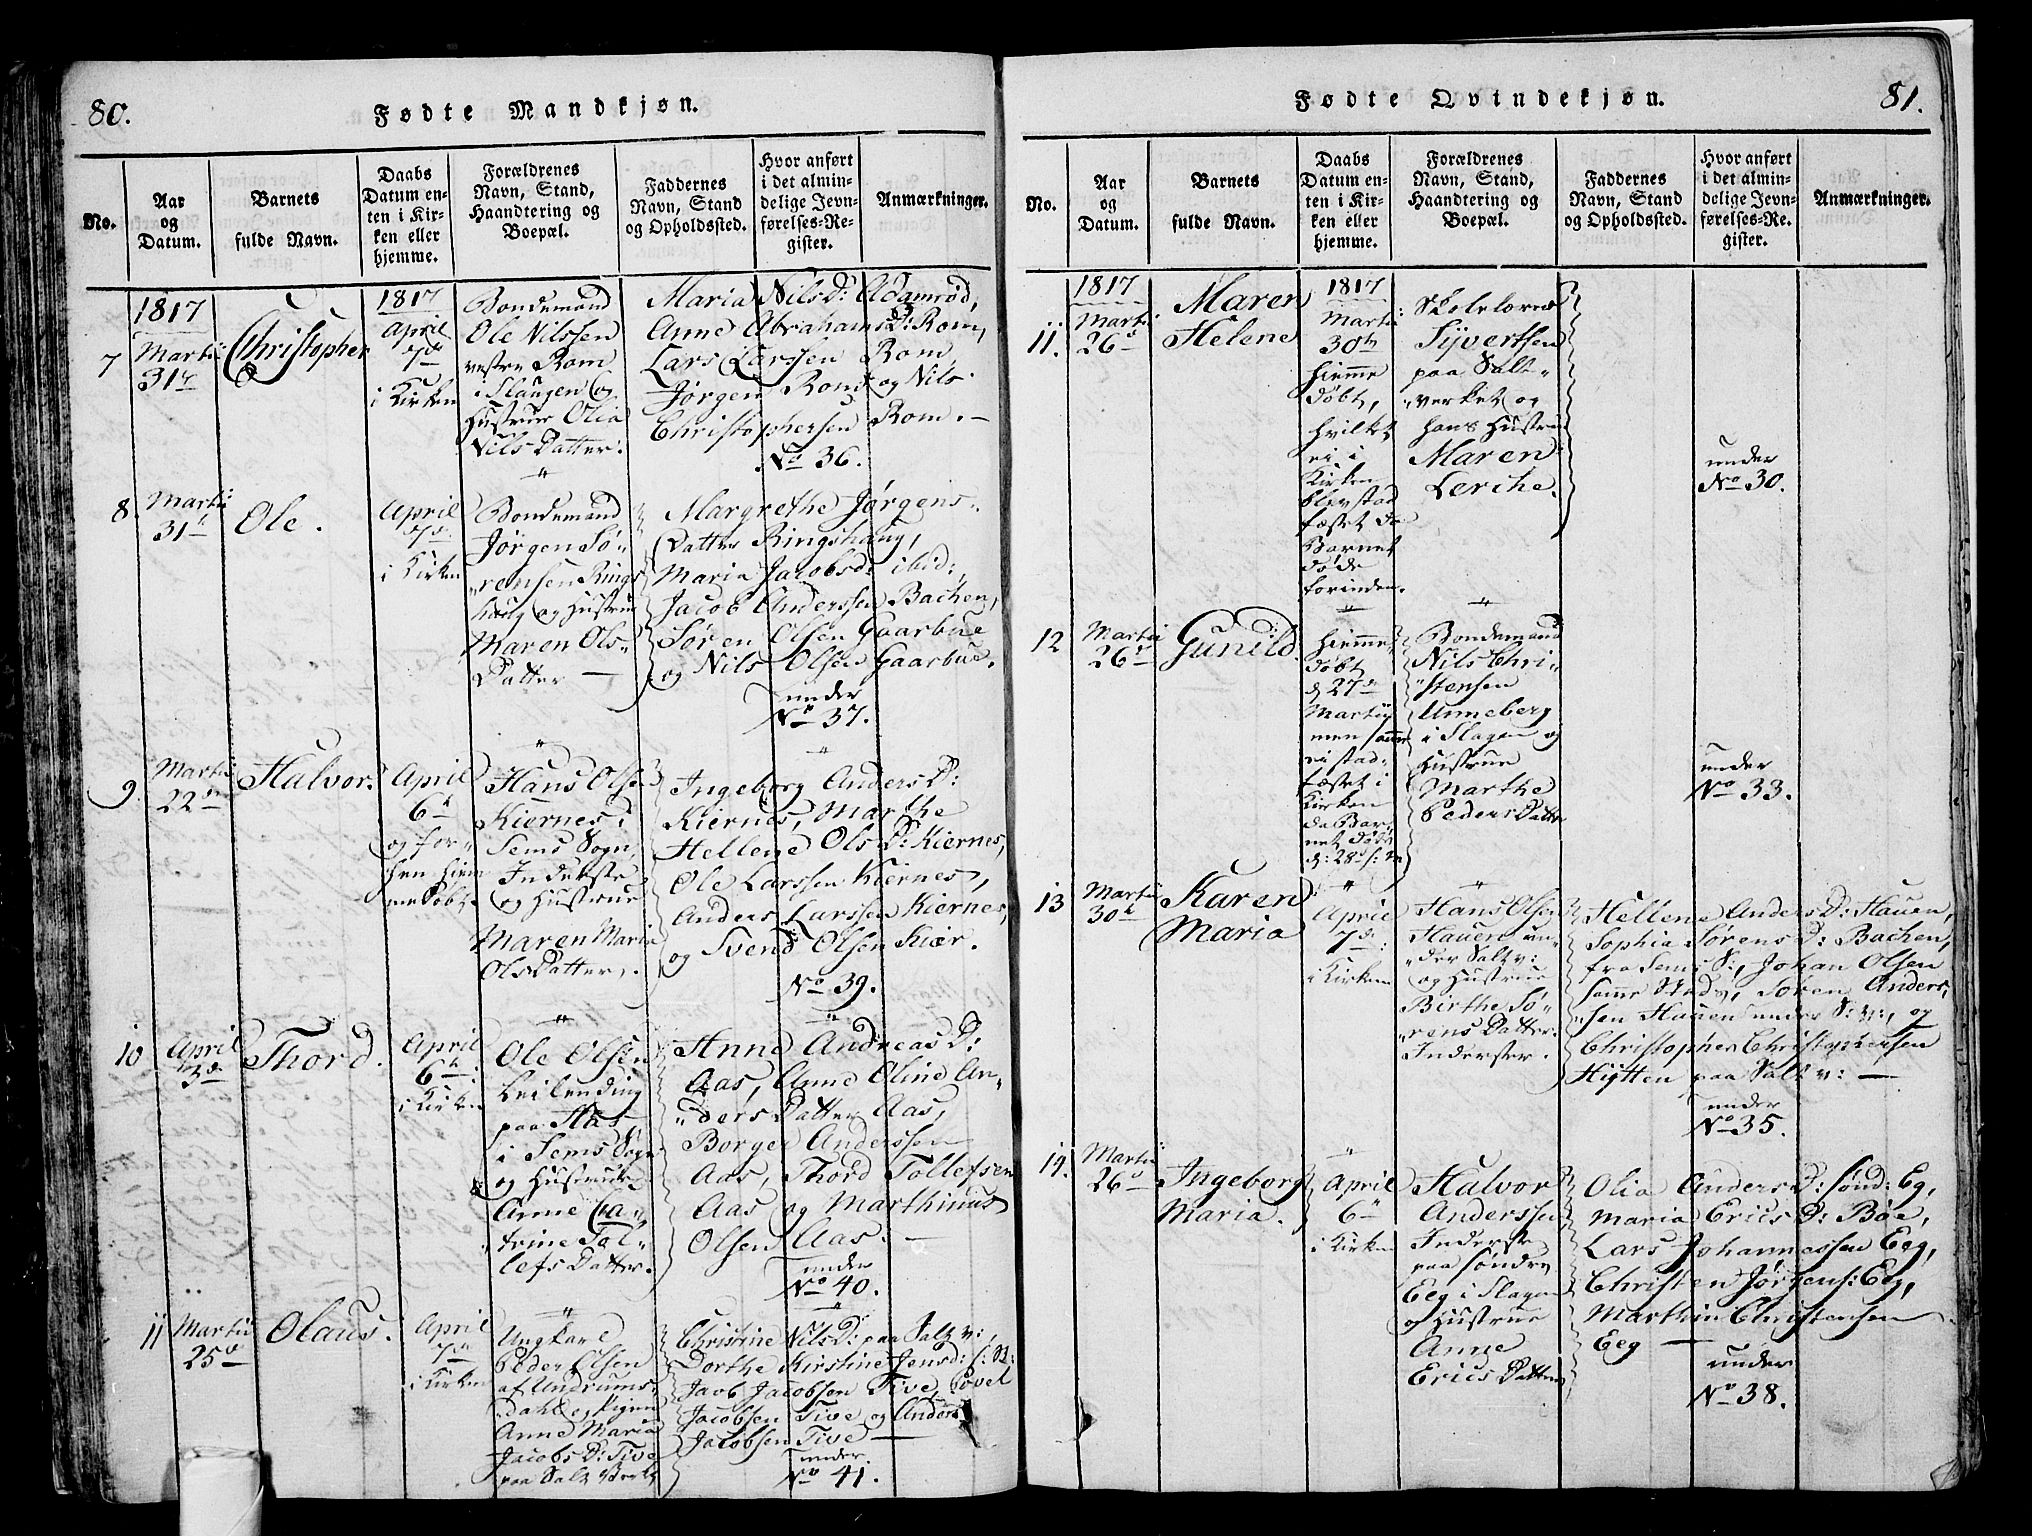 80.
Fødte Mandkjøn.
No.
Aar
og
Datum.
Barnets
fulde Navn.
Daabs
Datum en-
ten i Kir-
ken eller
hjemme.
Forældrenes
Navn, Stand,
Haandtering og
Boepæl.
Faddernes
Navn, Stand
og Opholdssted.
Hvor anført
i det almin-
delige Jevn-
førelses-Re-
gister.
Anmærkninger.
7
1817
Martii
31
Christopher
1817
April
7d
i Kirken
Bondemand
Ole Nilssen
vestre Rom
i Slaugen og
Hustrue Olia
Nils Datter.
Maria Nils D: Adamrød,
Anne Abrahams D: Rom,
Lars Larssen Rom,
Jørgen Rom og Nils
Christophersen Rom. –
No 36.
8.
Martii
31
Ole.
April
7
i Kirken
Bondemand
Jørgen Sø-
rensen Rings
haug og Hustrue
Maren Ols-
Datter —
Margrethe Jørgens-
Datter Ringshaug,
Maria Jacobsd: ibid:,
Jacob Anderssen Bachen,
Søren Olsen Gaarbue
og Nils Olsen Gaarbue.
under
No 37.
9.
Martii
22
Halvor.
April
6
og for-
hen hiem
me døbt.
Hans Olsen
Kiernes i
Sems Sogn,
Inderste
og Hustrue
Maren Maria
Ols Datter.
Ingeborg Anders D:
Kiernes, Marthe
Hellene Ols D: Kiernes,
Ole Larssen Kiernes,
Anders Larssen Kiernes,
og Svend Olsen Kiær.
No 39.
10
April
3d
Thord.
April
6
i Kirken
Ole Olsen
Leilending
paa Aas
i Sems Sogn
og Hustrue
Anne Ca-
trine Tol-
lefs Datter.
Anne Andreas D:
Aas, Anne Oline An-
ders Datter Aas,
Borger Anderssen
Aas, Thord Tollefsen
Aas og Marthinus
Olsen Aas. —
under
No 40.
11
Martii
25
Olaus.
April
7
i Kirken
Ungkarl
Peder Olsen
af Undrums-
dahl og Pigen
Anne Maria
Jacobs D: Tive
paa Salt Verket
Christine Nils D: paa Salt v:,
Dorthe Kirstine Jensd:
Jacob Jacobsen Tive, Povel
Jacobsen Tive og Anders
Jacobsen Tive —
under
No 41.
Fødte Qvindekjøn.
81.
No.
Aar
og
Datum.
Barnets
fulde Navn.
Daabs
Datum en-
ten i Kir-
ken eller
hjemme.
Forældrenes
Navn, Stand,
Haandtering og
Boepæl.
Faddernes
Navn, Stand
og Opholdssted.
Hvor anført
i det almin-
delige Jevn-
førelses-Re-
gister.
Anmærkninger.
11.
1817
Martii
26
Maren
Helene
1817
Martii
30
hiemme
døbt,
hvilket
ei i
Kirken
blev stad
fæstet da
Barnet
døde
forinden.
Skolelærer
Syvertsen
paa Salt-
verket og
hans Hustrue
Maren
Lerche.
under
No 30.
12
Martii
26
Gunild
hiemme-
døbt
d 27de
Martij
men
ei stad-
fæstet i
Kirken
da Bar-
net døde
d: 28
Bondemand
Nils Chri-
stensen
Unneberg
i Slagen og
Hustrue
Marthe
Peders Datter
under
No 33.
13
Martii
30
Karen
Maria
April
7d:
i Kirken
Hans Olsen
Hauen un-
der Salt v:
og Hustrue
Birthe Sø-
rens Datter.
Inderster.
Hellene Anders D: Hauen,
Sophia Sørens D: Bachen,
fra Sems S:, Johan Olsen
samme Sted, Søren Anders-
sen Hauen under S: v:, og
Christopher Christophersen
Hytten paa Salt v: —
under
No 35.
14.
Martii
26
Ingeborg
Maria.
April
6
i Kirken
Halvor
Anderssen
Inderste
paa søndre
Eeg i Slagen
og Hustrue
Anne
Erics Datter
Olia Anders D: Sønd: Eg,
Maria Erics D: Bøe,
Lars Johannessen Eeg,
Christen Jørgens: Eeg,
Marthin Christensen
Eeg —
under
No 38.